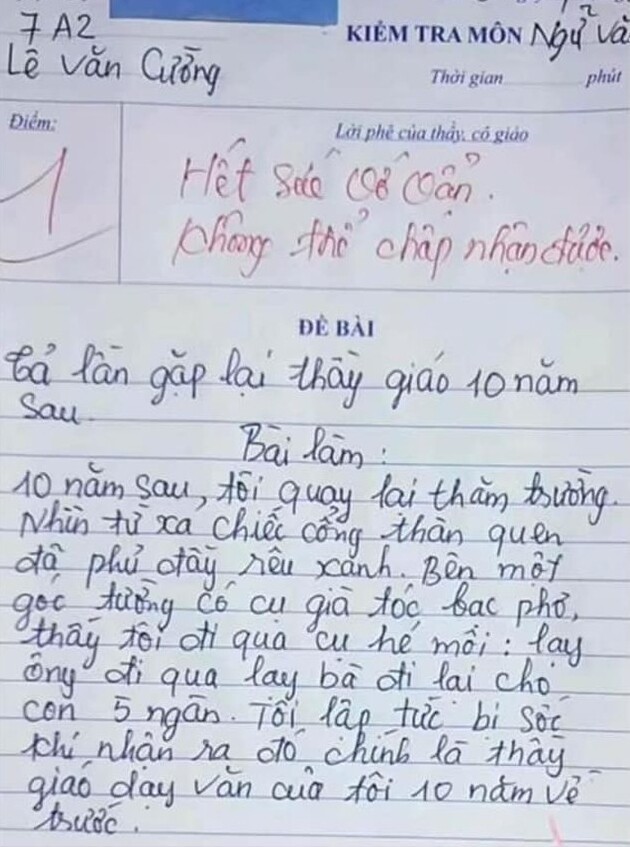 7A2
Lê Văn Cường
KIỂM TRA MÔN Ngữ Vă
Thời gian phút
Điểm:
1
Lời phê của thầy, cô giáo
Hết sức
không thể chấp nhận được.
ĐỀ BÀI
Tả lần gặp lại thầy giáo 10 năm
sau.
Bài làm:
10 năm sau, tôi quay lại thăm trường.
Nhìn từ xa chiếc cổng thân quen
đã phủ đầy rêu xanh. Bên một
góc tường có cụ già tóc bạc phơ,
thấy tôi đi qua cụ hé môi: lạy
ông đi qua lạy bà đi lại cho
con 5 ngàn. Tôi lập tức bị sốc
khi nhận ra đó chính là thầy
giáo dạy văn của tôi 10 năm về
trước.